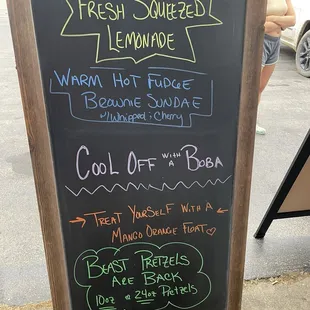 FRESH SQUEEZED
LEMONADE
WARM HOT FUDGE
BROWNIE SUNDAE
w/ Whipped & Cherry
COOL OFF WITH A BOBA
TREAT YOURSELF WITH A
MANGO ORANGE FLOAT
BEAST PRETZELS
ARE BACK
10oz & 24oz PRETZELS